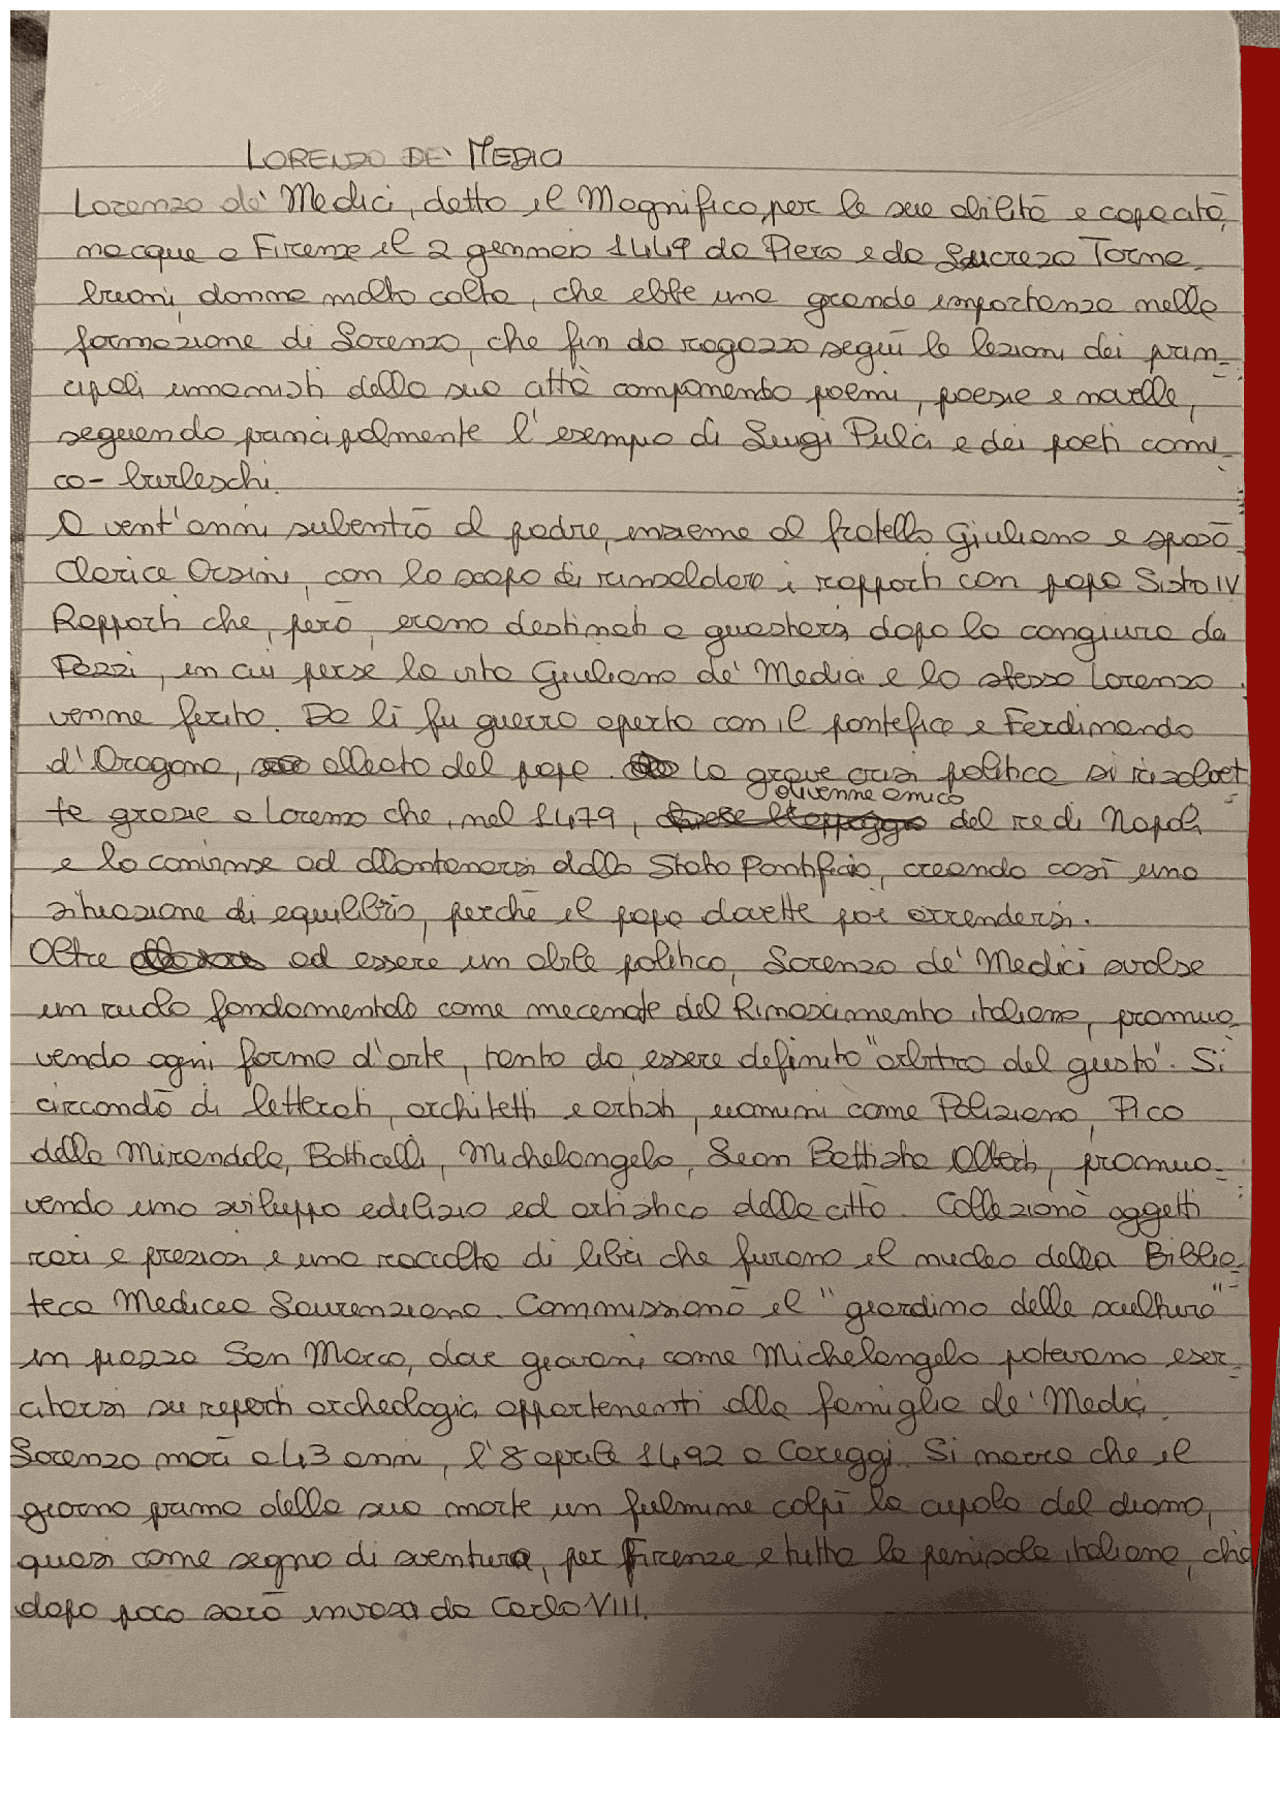 LORENZO DE' MEDICI
Lorenzo de' Medici, detto il Magnifico, per le sue abilità e capacità,
nacque a Firenze il 2 gennaio 1449 da Piero e da Lucreza Torna-
buoni, donna molto colta, che ebbe una grande importanza nella
formazione di Lorenzo, che fin da ragazzo seguì le lezioni dei prin-
cipali umanisti della sua città componento poemi, poesie e novelle,
seguendo principalmente l'esempio di Luigi Pulci e dei poeti comi-
co-burleschi.
A vent'anni subentrò al padre, insieme al fratello Giuliano e sposò
Clarice Orsini, con lo scopo di rinsaldare i rapporti con papa Sisto IV
Rapporti che, però, erano destinati a guastarsi dopo la congiura de
Pazzi, in cui perse la vita Giuliano de' Medici e lo stesso Lorenzo
venne ferito. Da lì fu guerra aperta con il pontefice e Ferdinando
d'Aragona, alleato del papa. La grave crisi politica si risolvet-
te grazie a Lorenzo che, nel 1479, divenne amico del re di Napoli
e lo convinse ad allontanarsi dallo Stato Pontificio, creando così una
situazione di equilibrio, perché il papa dovette poi arrendersi.
Oltre ad essere un abile politico, Lorenzo de' Medici svolse
un ruolo fondamentale come mecenate del Rinascimento italiano, promuo-
vendo ogni forma d'arte, tanto da essere definito "arbitro del gusto". Si
circondò di letterati, architetti e artisti, uomini come Poliziano, Pico
della Mirandola, Botticelli, Michelangelo, Leon Battista Alberti, promuo-
vendo uno sviluppo edilizio ed artistico della città. Collezionò oggetti
rari e preziosi e una raccolta di libri che furono il nucleo della Biblio-
teca Medicea Laurenziana. Commissionò il "giardino delle sculture"
in piazza San Marco, dove giovani come Michelangelo potevano eser-
citarsi su reperti archeologici appartenenti alla famiglia de' Medici.
Lorenzo morì a 43 anni, l'8 aprile 1492 a Careggi. Si narra che il
giorno prima della sua morte un fulmine colpì la cupola del duomo,
quasi come segno di sventura, per Firenze e tutta la penisola italiana, che
dopo poco sarà invasa da Carlo VIII.